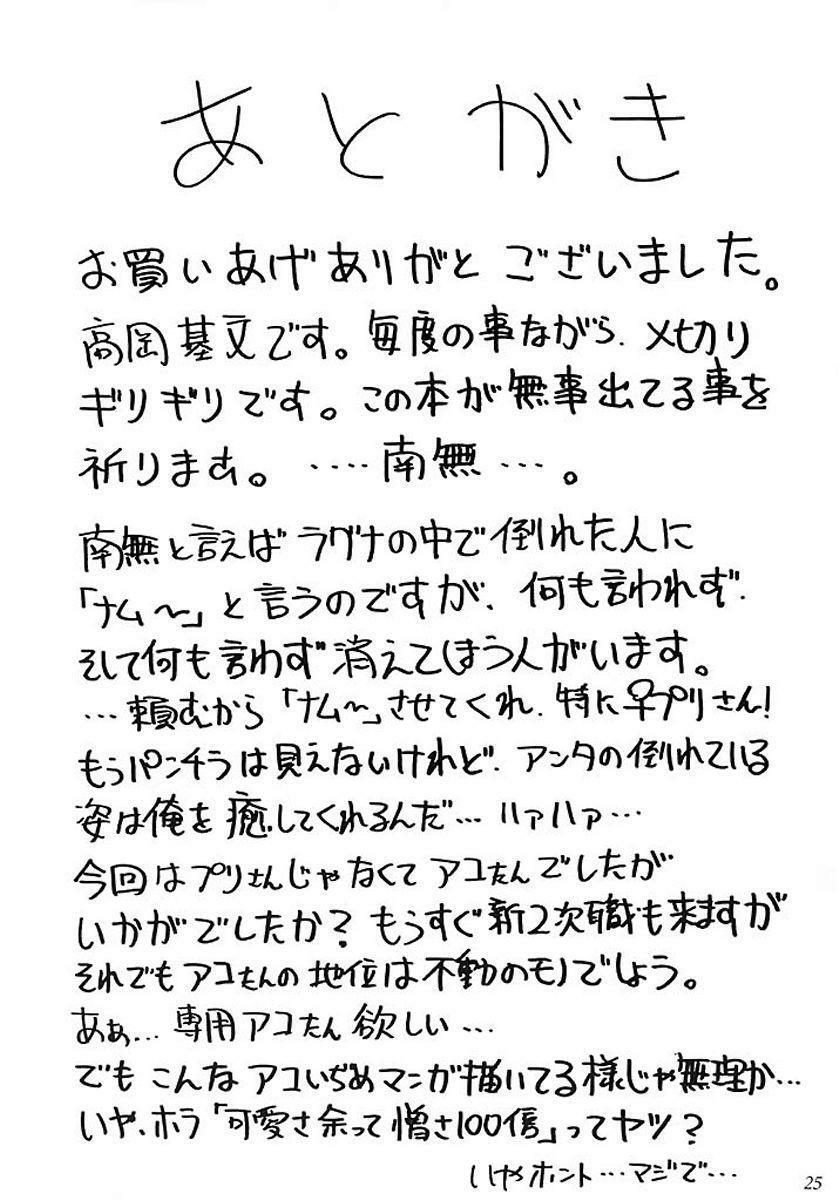 あとがき
お買いあげありがとうございました。
高岡基文です。毎度の事ながら、〆切り
ギリギリです。この本が無事出てる事を
祈ります。‥‥南無…。
南無と言えばラグナの中で倒れた人に
「ナム〜」と言うのですが、何も言われず、
そして何も言わず消えてしまう人がいます。
…頼むから「ナム〜」させてくれ、特に♀プリさん!
もうパンチラは見えないけれど、アンタの倒れている
姿は俺を癒してくれるんだ…ハァハァ…
今回はプリさんじゃなくてアコたんでしたが
いかがでしたか?もうすぐ新2次職も来ますが
それでもアコたんの地位は不動のモノでしょう。
あぁ…専用アコたん欲しい…
でもこんなアコいぢめマンガ描いてる様じゃ無理か…
いや、ホラ「可愛さ余って憎さ100倍」ってヤツ?
いやホント…マジで…
25